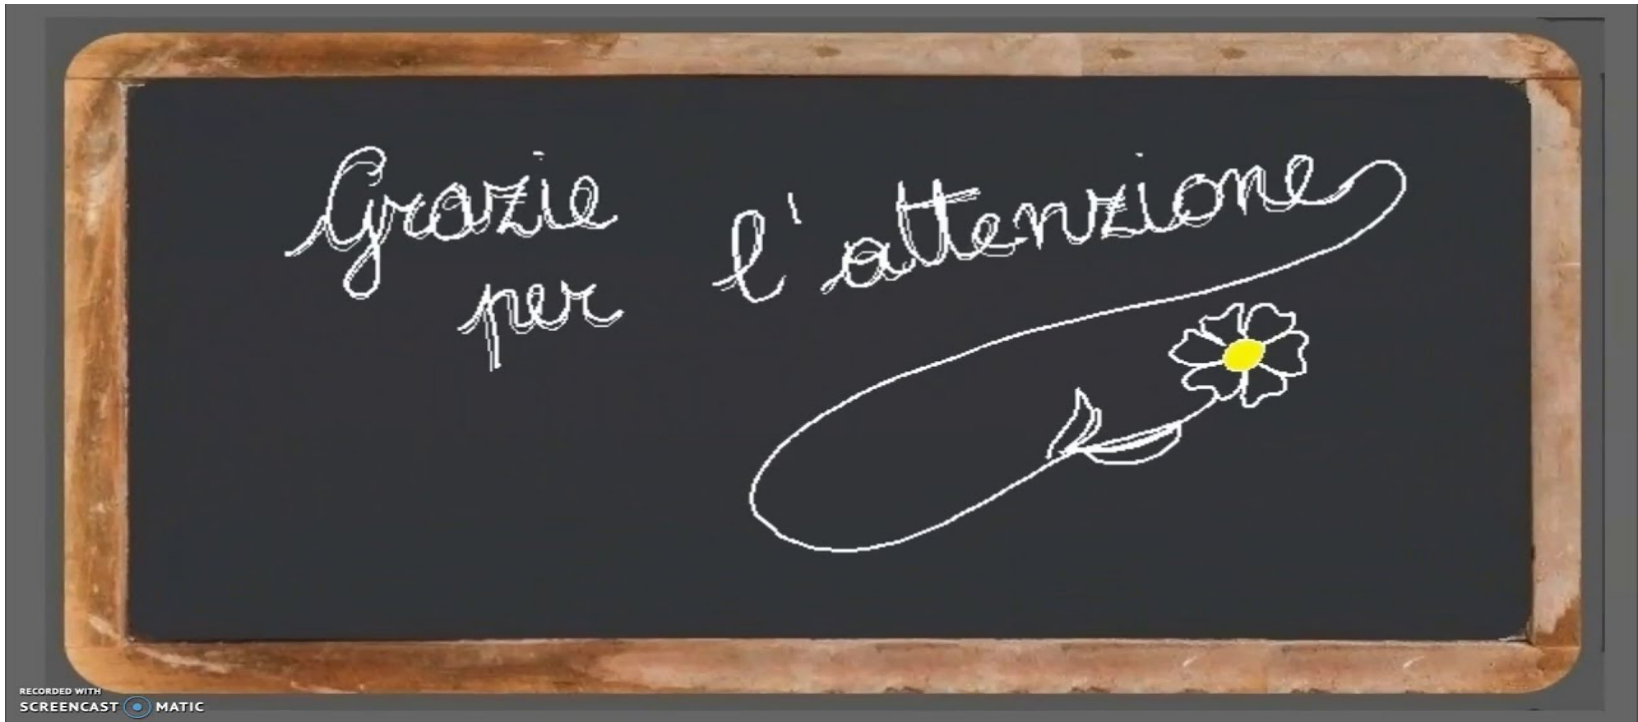 Grazie
per
l'attenzione
RECORDED WITH
SCREENCAST MATIC